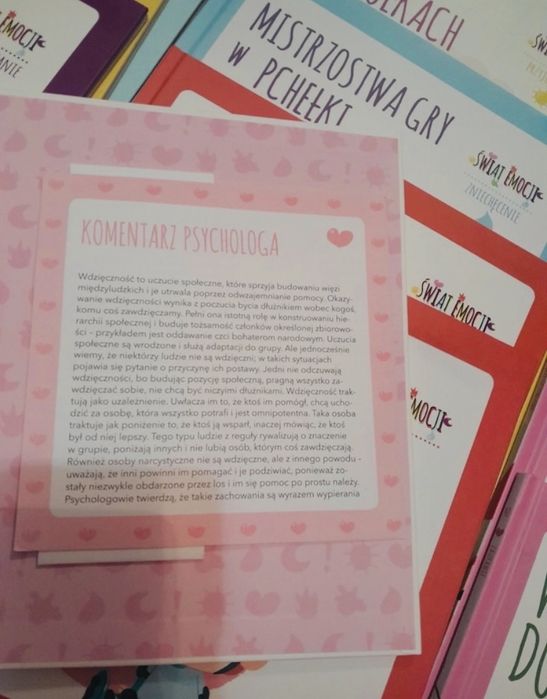 EMOCJI
ANIE
OLKACH
MISTRZOSTWA GRY
W PCHEŁKI
ŚWIAT EMOCJI
ZNIECHĘCENIE
ŚWIAT EMOCJI
EMOCJI
KOMENTARZ PSYCHOLOGA
Wdzięczność to uczucie społeczne, które sprzyja budowaniu więzi
międzyludzkich i je utrwala poprzez odwzajemnianie pomocy. Okazy-
wanie wdzięczności wynika z poczucia bycia dłużnikiem wobec kogoś,
komu coś zawdzięczamy. Pełni ona istotną rolę w konstruowaniu hie-
rarchii społecznej i buduje tożsamość członków określonej zbiorowo-
ści – przykładem jest oddawanie czci bohaterom narodowym. Uczucia
społeczne są wrodzone i służą adaptacji do grupy. Ale jednocześnie
wiemy, że niektórzy ludzie nie są wdzięczni; w takich sytuacjach
pojawia się pytanie o przyczynę ich postawy. Jedni nie odczuwają
wdzięczności, bo budując pozycję społeczną, pragną wszystko za-
wdzięczać sobie, nie chcą być niczyimi dłużnikami. Wdzięczność trak-
tują jako uzależnienie. Uwłacza im to, że ktoś im pomógł, chcą ucho-
dzić za osobę, która wszystko potrafi i jest omnipotentna. Taka osoba
traktuje jak poniżenie to, że ktoś ją wsparł, inaczej mówiąc, że ktoś
był od niej lepszy. Tego typu ludzie z reguły rywalizują o znaczenie
w grupie, poniżają innych i nie lubią osób, którym coś zawdzięczają.
Również osoby narcystyczne nie są wdzięczne, ale z innego powodu –
uważają, że inni powinni im pomagać i je podziwiać, ponieważ zo-
stały niezwykle obdarzone przez los i im się pomoc po prostu należy.
Psychologowie twierdzą, że takie zachowania są wyrazem wypierania